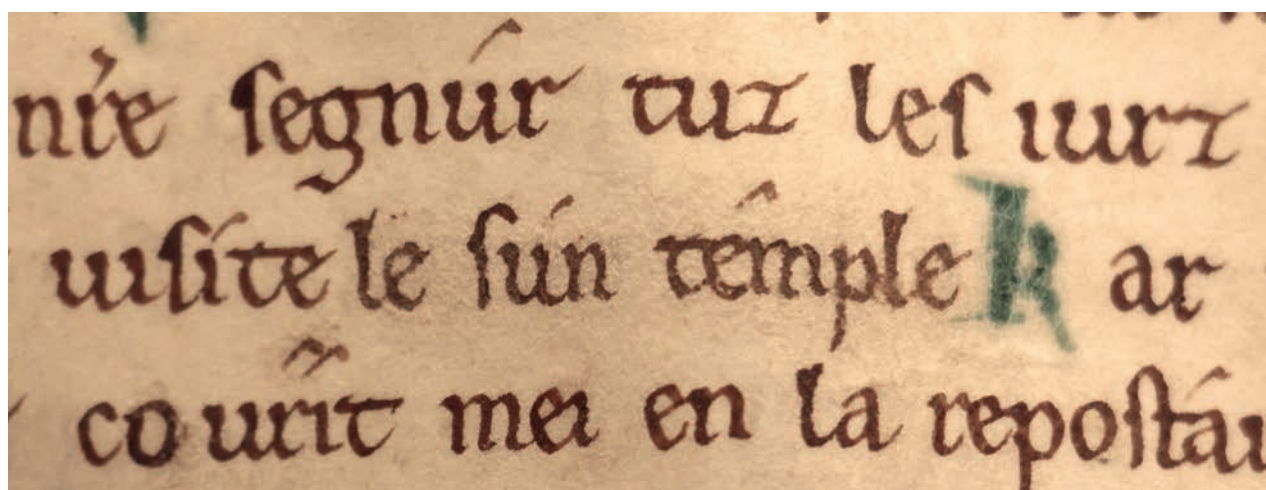 nr̃e ſegnúr tuz les iurz
uiſite le ſún témple k ar
co urít mei en la repoſtáu